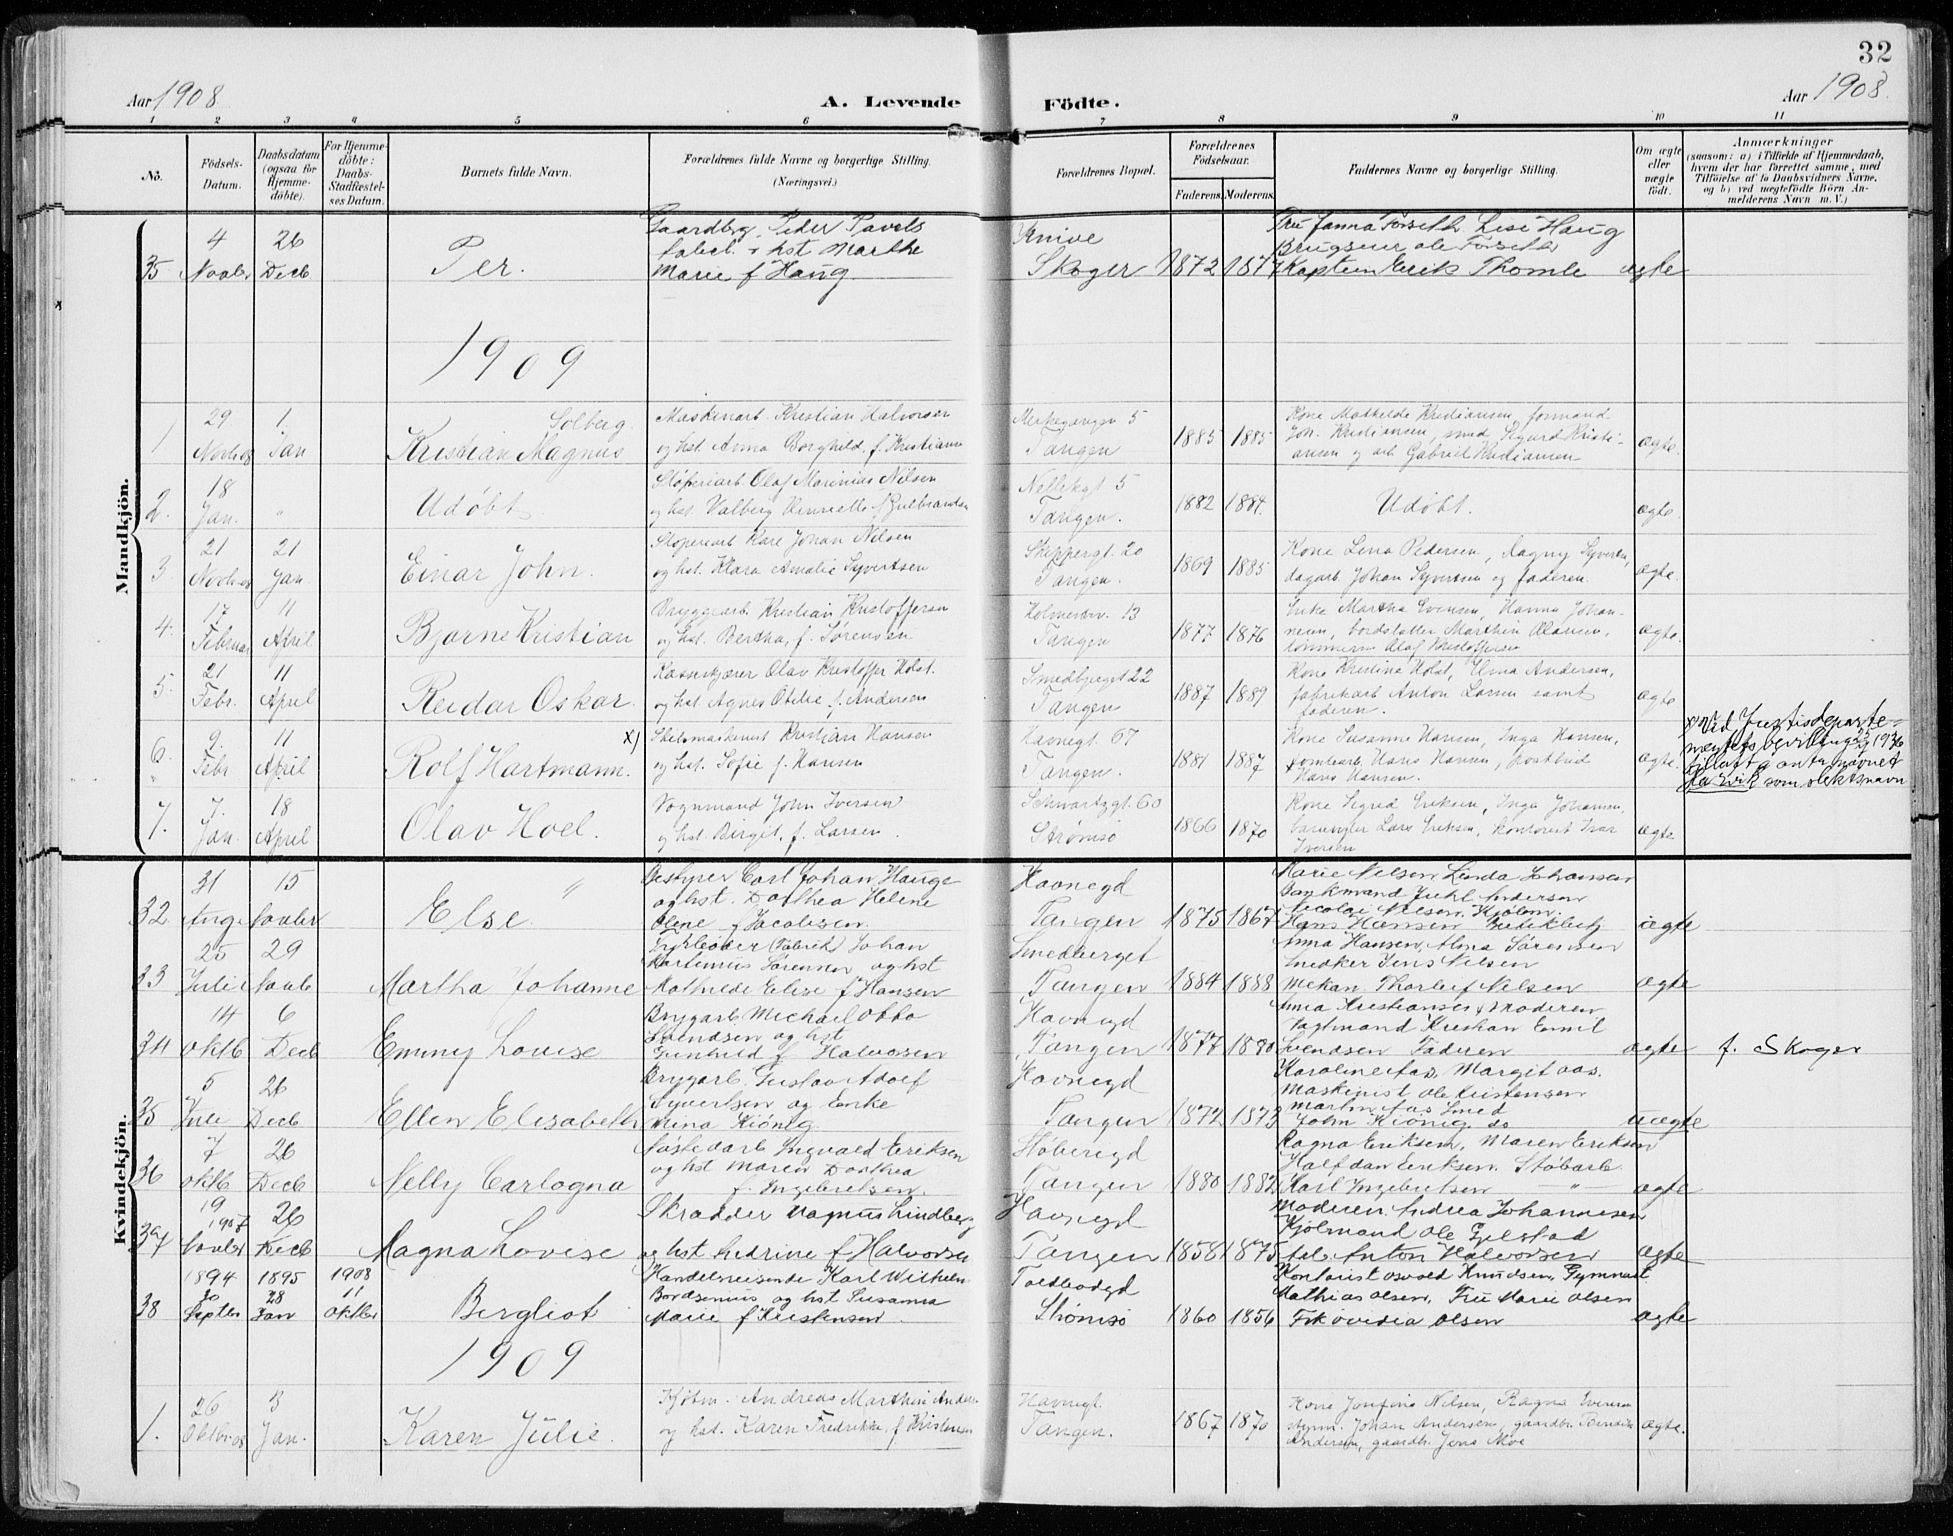 32
Aar 1908
A. Levende
Födte.
Aar 1908.
1 2 3 4 5 6 7 8 9 10 11
No.
Födsels-
Datum.
Daabsdatum
(ogsaa for
Hjemme-
döbte).
For Hjemme-
döbte:
Daabs-
Stadfæstel-
ses Datum.
Barnets fulde Navn.
Forældrenes fulde Navne og borgerlige Stilling.
(Næringsvei.)
Forældrenes Bopæl.
Forældrenes
Födselsaar.
Faderens. Moderens.
Faddernes Navne og borgerlige Stilling.
Om ægte
eller
uægte
født.
Anmærkninger
(saasom: a) i Tilfælde af Hjemmedaab,
hvem der har forrettet samme, med
Tilföielse af to Daabsvidners Navne,
og b) ved uægtefödte Börn An-
melderens Navn m. V.)
Mandkjön.
35 4 Novbr 26 Decb Per.
Gaardbr. Peder Pavels
og hst Marthe
Marie f Haug.
Knive
Skoger 1872 1877
Fru Janna Forseth Lise Haug
Brugseier Ole Forseth
Kaptein Erik Thomle ægte
1909
1 29 Novbr 08 1. Jan Solberg
Kristian Magnus
Maskinarb. Kristian Halvorsen
og hst. Anna Borghild f. Kristianse
5
Tangen 1885 1885
Kone Mathilde Kristiansen, formand
Joh. Kristiansen, smed Sigurd Kristi-
ansen og arb Gabriel Kristiansen ægte.
2. 18 Jan. " Udöbt
Støperiarb. Olaf Marinius Nilsen
og hst. Valborg Henriette f Gulbrandsen
5
Tangen. 1882 1884.
Udöbt. ægte.
3. 21 Novbr 08 21 Jan. Einar John.
Støperiarb Karl Johan Nilsen
og hst. Klara Amalie Syvertsen
Skippergt. 20
Tangen. 1869 1885
Kone Lina Pedersen, Dagny Syvertsen,
dagarb. Johan Syvertsen og faderen. ægte.
4. 17 Februar 11 April Bjarne Kristian
Bryggearb. Kristian Kristoffersen
og hst. Bertha, f. Sørensen
13
Tangen 1877 1876
Enke Martha Evensen, Hanna Johan-
nesen, Marthin Olausen,
Olaf Kristoffersen ægte.
5. 21 Febr. 11 April Reidar Oskar.
Olav Kristoffer Holst.
og hst. Agnes Otilie f. Andersen
Smedbjerget 22
Tangen 1887 1889
Kone Kristine Holst, Alma Andersen,
fabrikarb Anton Larsen samt
faderen. ægte
6. 9. Febr 11 April Rolf Hartmann. x)
Skibsmaskinist Kristian Hansen
og hst. Sofie f. Hansen
Havnegt 67
Tangen. 1881 1887
Kone Susanne Hansen, Inga Hansen,
Hans Hansen, postbud
Hans Hansen. ægte.
x) Ved Justisdeparte-
mentets bevilling 1936
tillatt å anta navnet
som slektsnavn
7. 7. Jan. 18 April Olav Hoel.
Vognmand John Iversen
og hst. Birgit, f. Larsen.
Schwartzgt. 60
Strømsø 1866 1870
Kone Sigrid Eriksen, Inga Johansen,
Lars Eriksen, kontorist Ivar
Iversen ægte
Kvindekjön.
32 31 Aug 15 Novbr Else.
Bestyrer Carl Johan Hauge
og hst. Dorthea Helene
Oline f Jacobsen
Havnegd
Tangen 1875 1867
Marie Nilsen Linda Johansen
Juhl Andersen
Nicolai Nilsen
Hans Hansen ægte
33 25 Juli 29 Novb Martha Johanne
Johan
Martinius Sørensen og hst
Mathilde Elise f Hansen
Smedberget
Tangen 1884 1888
Anna Hansen, Alma Sørensen
Snedker Jens Nilsen
Mekan. Thorleif Nilsen ægte
34 14 oktb 6 Decb Emmy Lovise
Brygarb Michael Otto
Svendsen og hst
Gunhild f Halvorsen
Havnegd
Tangen 1877 1880
Anna Kristiansen Moderen
Vagtmand Kristian Emil
Svendsen Faderen ægte f. Skoger
35 5 Juli 26 Decb Ellen Elisabeth
Brygarb. Gustav Adolf
Syvertsen og Enke
Mina Kiönig.
Havnegd
Tangen 1872 1873
Karoline Aas, Margit Aas.
Maskinist Ole Kristensen
Martin Aas Smed
John Kiönig do uægte
36 7 oktb 26 Decb Nelly Carlogna
Ingvald Eriksen
og hst Maren Dorthea
f. Ingebretsen.
Støberigd
Tangen 1880 1882
Ragna Eriksen, Maren Eriksen
Halfdan Eriksen. Støbarb
Karl Ingebretsen — " — ægte
37 19 1907 Novbr 26 Decb Magna Lovise
Skrædder Magnus Lindberg
og hst Andrine f Halvorsen
Havnegd
Tangen 1858 1875
Moderen. Andrea Johannesen
Kjølmand Ole Gjelstad
Anton Halvorsen ægte
38 1894 30 Septbr 1895 28 Jan 1908 11 oktbr Bergliot
Handelsreisende Karl Wilhelm
Bordsenius og hst Susanna
Marie f Kristensen
Toldbodgd
Strømsø 1860 1856
Kontorist Osvald Knudsen, Gymnast
Mathias Olsen, Fru Marie Olsen
Frk Ovidia Olsen ægte
1909
1. 26 Oktbr. 08 3 Jan. Karen Julie
Andreas Marthin Ander
og hst. Karen Fredrikke, f Kristensen
Havnegt.
Tangen. 1867 1870
Kone Josefine Nilsen, Ragna Iversen
Johan Andersen, gaardbr.
Andersen, gaardbr. Jens Moe ægte.